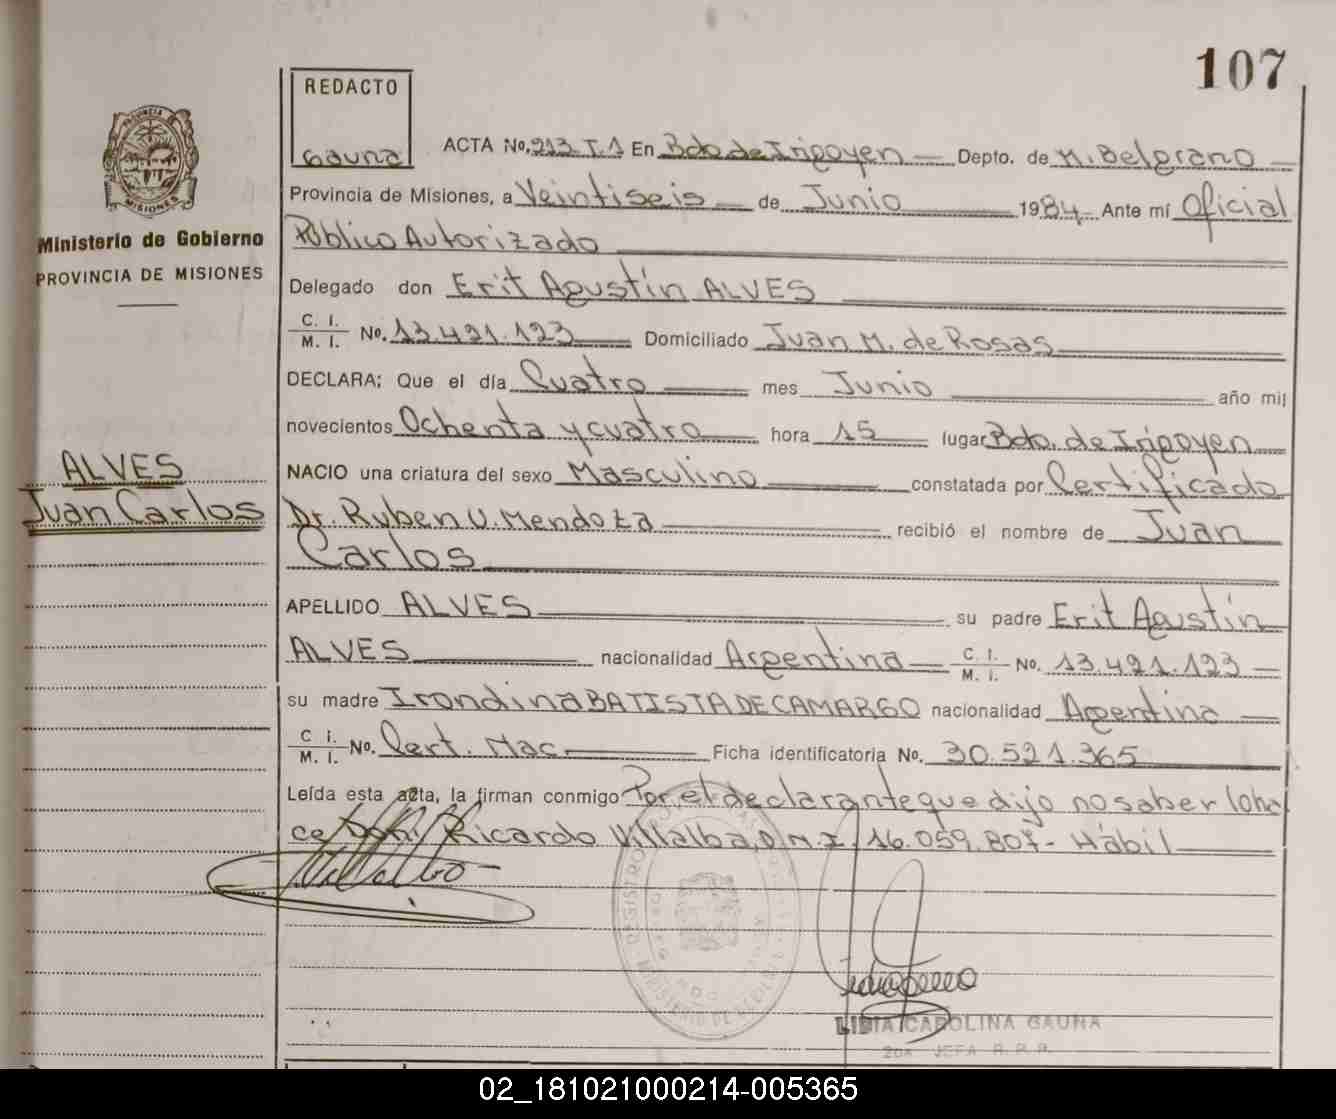 107
REDACTO
Gauna
ACTA No. 213 T.1 En Bdo de Irigoyen Depto. de M. Belgrano
Provincia de Misiones, a Veintiseis de Junio 1984 Ante mí Oficial
Público Autorizado
PROVINCIA
MISIONES
Ministerio de Gobierno
PROVINCIA DE MISIONES
Delegado don Erit Agustín ALVES
C. I.
M. I. No. 13.421.123 Domiciliado Juan M. de Rosas
DECLARA; Que el día Cuatro mes Junio año mil
novecientos Ochenta y cuatro hora 15 lugar Bdo. de Irigoyen
ALVES
Juan Carlos
NACIO una criatura del sexo Masculino constatada por Certificado
Dr. Ruben U. Mendoza recibió el nombre de Juan
Carlos
APELLIDO ALVES su padre Erit Agustín
ALVES nacionalidad Argentina C. I. M. I. No. 13.421.123
su madre Irondina BATISTA DE CAMARGO nacionalidad Argentina
C I. M. I. No. Cert. Nac. Ficha identificatoria No. 30.521.365
Leída esta acta, la firman conmigo Por el declarante que dijo no saber lo ha
ce Don: Ricardo Villalba, D.N.I. 16.059.807- Hábil
LIDIA CAROLINA GAUNA
2da JEFA R.P.P.
02_181021000214-005365